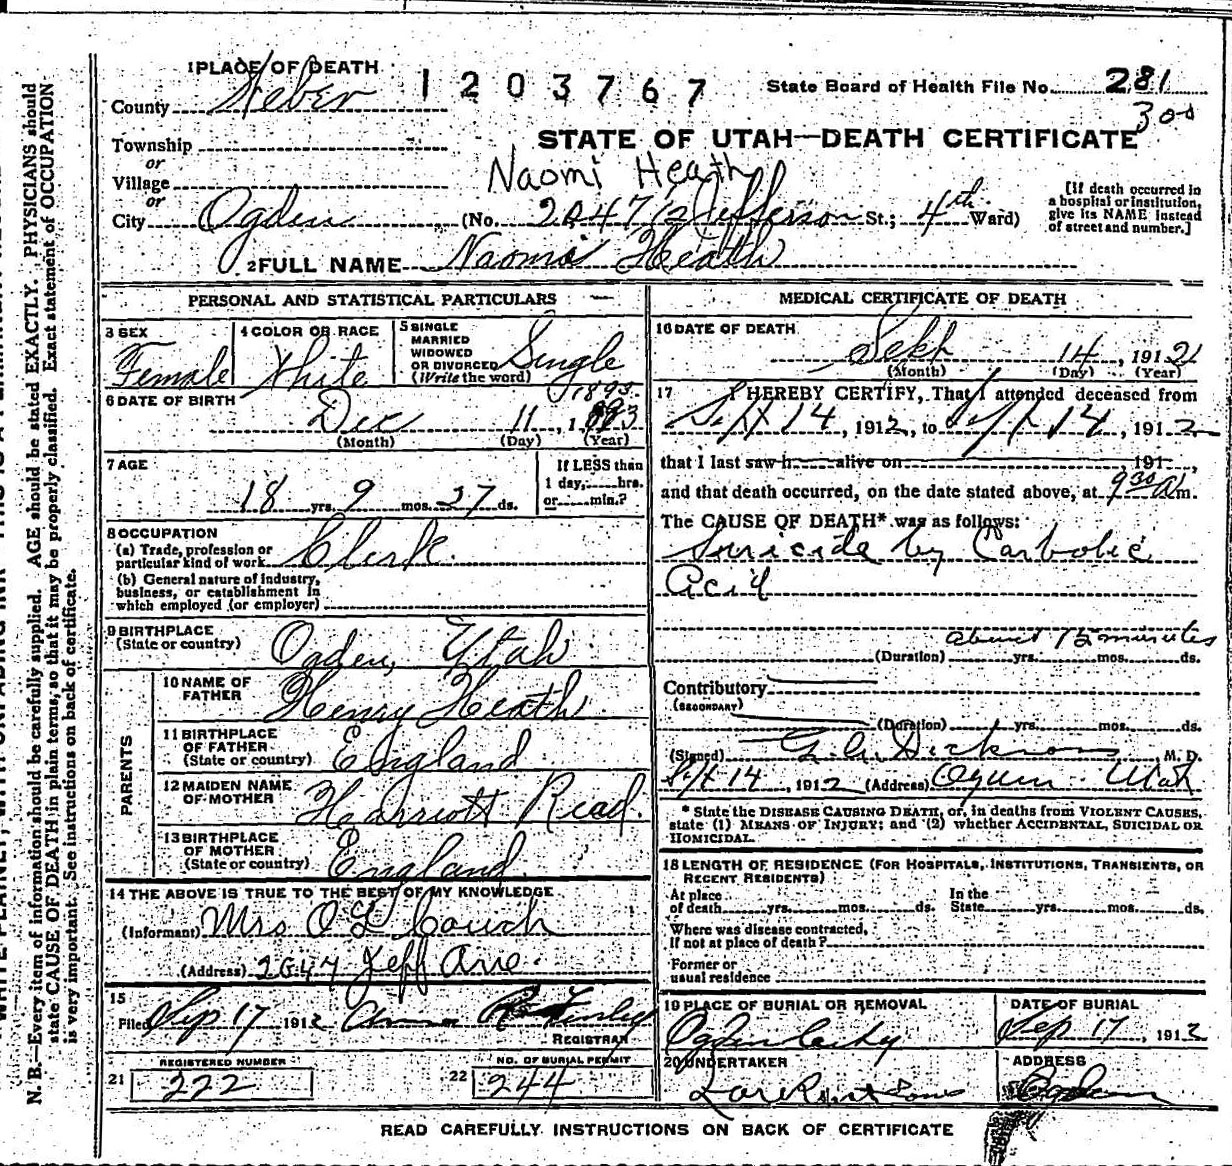 1 PLACE OF DEATH
1203767
State Board of Health File No. 281
300
County Weber
STATE OF UTAH—DEATH CERTIFICATE
Township
or
Village
or
Naomi Heath
City Ogden (No. 2647 1/2 Jefferson St.; 4th Ward)
[If death occurred in
a hospital or institution,
give its NAME instead
of street and number.]
2 FULL NAME Naomi Heath
PERSONAL AND STATISTICAL PARTICULARS
3 SEX
Female
4 COLOR OR RACE
White
5 SINGLE
MARRIED
WIDOWED
OR DIVORCED
(Write the word)
Single
6 DATE OF BIRTH
1893
Dec 11, 1893
(Month) (Day) (Year)
7 AGE
18 yrs. 9 mos. 27 ds.
If LESS than
1 day, hrs.
or min.?
8 OCCUPATION
(a) Trade, profession or
particular kind of work Clerk.
(b) General nature of industry,
business, or establishment in
which employed (or employer)
9 BIRTHPLACE
(State or country) Ogden, Utah
PARENTS
10 NAME OF
FATHER Henry Heath
11 BIRTHPLACE
OF FATHER
(State or country) England
12 MAIDEN NAME
OF MOTHER Harriott Read.
13 BIRTHPLACE
OF MOTHER
(State or country) England
14 THE ABOVE IS TRUE TO THE BEST OF MY KNOWLEDGE
(Informant) Mrs O L Couch
(Address) 2647 Jeff Ave.
15
Filed Sep 17 1912 Anna R Finley
REGISTRAR
REGISTERED NUMBER
21 222
NO. OF BURIAL PERMIT
22 244
MEDICAL CERTIFICATE OF DEATH
16 DATE OF DEATH
Sept 14, 1912
(Month) (Day) (Year)
17 I HEREBY CERTIFY, That I attended deceased from
Sept 14, 1912, to Sept 14, 1912
that I last saw h alive on 191 ,
and that death occurred, on the date stated above, at 9 30 A m.
The CAUSE OF DEATH* was as follows:
Suicide by Carbolic
Acid
about 15 minutes
(Duration) yrs. mos. ds.
Contributory
(SECONDARY)
(Duration) yrs. mos. ds.
(Signed) M. D.
Sept 14, 1912 (Address) Ogden Utah
* State the DISEASE CAUSING DEATH, or, in deaths from VIOLENT CAUSES,
state (1) MEANS OF INJURY; and (2) whether ACCIDENTAL, SUICIDAL OR
HOMICIDAL.
18 LENGTH OF RESIDENCE (FOR HOSPITALS, INSTITUTIONS, TRANSIENTS, OR
RECENT RESIDENTS)
At place
of death yrs. mos. ds.
In the
State yrs. mos. ds.
Where was disease contracted,
If not at place of death?
Former or
usual residence
19 PLACE OF BURIAL OR REMOVAL
Ogden City
DATE OF BURIAL
Sep 17, 1912
20 UNDERTAKER
ADDRESS
Ogden
READ CAREFULLY INSTRUCTIONS ON BACK OF CERTIFICATE
N. B.—Every item of information should be carefully supplied. AGE should be stated EXACTLY. PHYSICIANS should
state CAUSE OF DEATH in plain terms, so that it may be properly classified. Exact statement of OCCUPATION
is very important. See instructions on back of certificate.